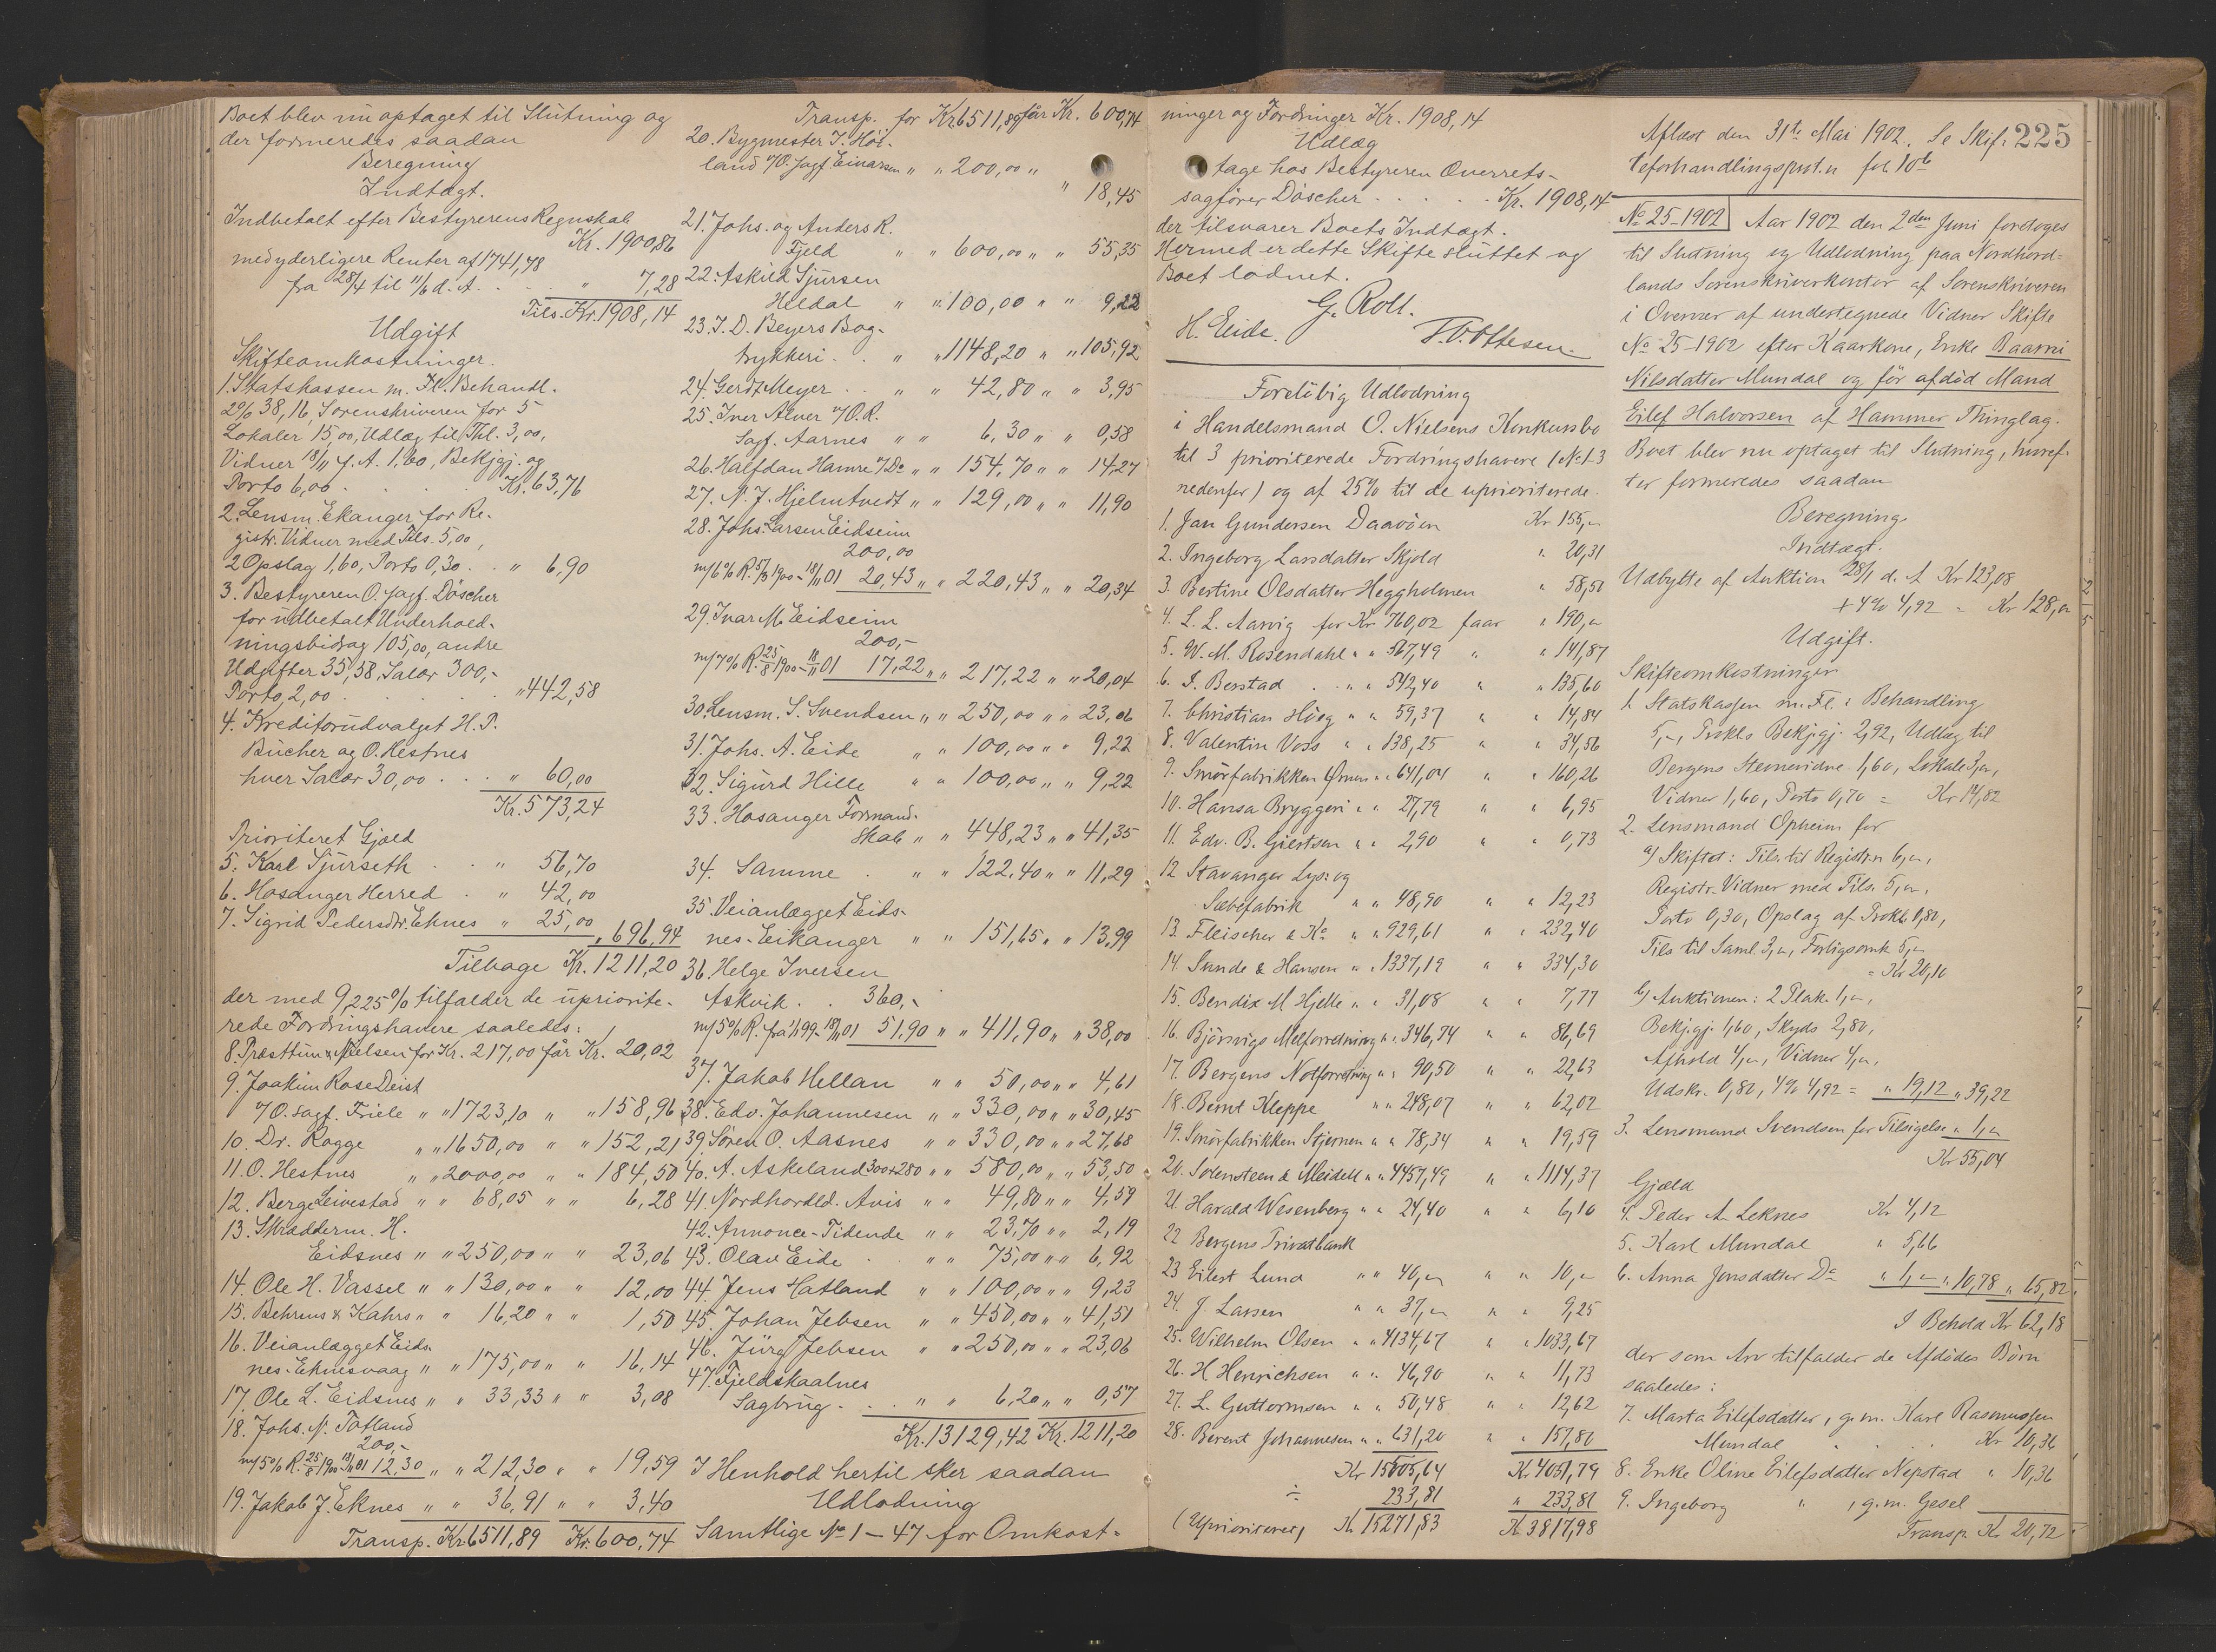 Boet blev nu optaget til Slutning og
der formeredes saadan
Beregning
Indtægt.
Indbetalt efter Bestyrerens Regnskab
Kr. 1900,86
med yderligere Renter af 1741,78
fra 28/4 til 11/6 d. A. . . " 7,28
Tils. Kr. 1908,14
Udgift
Skifteomkostninger.
1. Statskassen m. Fl. Behandl.
2% 38,16, Sorenskriveren for 5
Lokaler 15,00, Udlæg til Thl. 3,00,
Vidner 18/11 f. A. 1,60, Bekjgj. og
Porto 6,00 . . . . Kr. 63,76
2. Lensm. Ekanger for Re-
gistr. Vidner med Tils. 5,00,
2 Opslag 1,60, Porto 0,30 . . " 6,90
3. Bestyreren O. sagf. Döscher
for udbetalt Underhold-
ningsbidrag 105,00, andre
Udgifter 35,58, Salær 300,-
Porto 2,00 . . . . . "442,58
4. Kreditorudvalget H. P.
Bücher og O. Hestnes
hver Salær 30,00 . . . " 60,00
Kr. 573,24
Prioriteret Gjæld
5. Karl Sjurseth . . " 56,70
6. Hosanger Herred . " 42,00
7. Sigrid Pedersdtr. Eknes " 25,00
" 696,94
Tilbage Kr. 1211,20
der med 9,225% tilfalder de upriorite-
rede Fordringshavere saaledes:
8. Præsttun & Nielsen for Kr. 217,00 får Kr. 20,02
9. Joakim Rose Deist
v/O. sagf. Friele " "1723,10 " "158,96
10. Dr. Rogge " "1650,00 " "152,21
11. O. Hestnes " "2000,00 " "184,50
12. Berge Leivestad " " 68,05 " " 6,28
13. Skrædderm. H.
Eidsnes " "250,00 " " 23,06
14. Ole H. Vassel " "130,00 " " 12,00
15. Behrens & Kahrs " " 16,20 " " 1,50
16. Veianlægget Eids-
nes-Eknesvaag " "175,00 " " 16,14
17. Ole L. Eidsnes " " 33,33 " " 3,08
18. Johs. N. Totland
200,-
m/5% R. 25/8 1900-18/11 01 12,30 " "212,30 " " 19,59
19. Jakob J. Eknes " " 36,91 " " 3,40
Transp. Kr. 6511,89 Kr. 600,74
Transp. for Kr. 6511,89 får Kr. 600,74
20. Bygmester I. Höi-
land v/O. sagf. Einarsen " " 200,00 "
" 18,45
21. Johs. og Anders R.
Fjeld " " 600,00 " " 55,35
22. Askild Sjursen
Heldal " " 100,00 " " 9,22
23. J. D. Beyers Bog-
trykkeri . . " "1148,20 " "105,92
24. Gerdt Meyer . " " 42,80 " " 3,95
25. Iver Alver v/O. R.
Sagf. Aarnes " " 6,30 " " 0,58
26. Halfdan Hamre v/Do " " 154,70 " " 14,27
27. N. J. Hjelmtvedt " " 129,00 " " 11,90
28. Johs. Larsen Eidseim
200,00
m/6% R. 5/3 1900-18/11 01 20,43 " " 220,43 " " 20,34
29. Ivar M. Eidseim
200,-
m/7% R. 25/8 1900-18/11 01 17,22 " " 217,22 " " 20,04
30. Lensm. S. Svendsen " " 250,00 " " 23,06
31. Johs. A. Eide " " 100,00 " " 9,22
32. Sigurd Hille " " 100,00 " " 9,22
33. Hosanger Formand-
skab " " 448,23 " " 41,35
34. Samme . " " 122,40 " " 11,29
35. Veianlægget Eids-
nes-Eikanger " " 151,65 " " 13,99
36. Helge Iversen
Askvik . . 360,-
m/5% R. fra 1/1 99-18/11 01 51,90 " " 411,90 " " 38,00
37. Jakob Hellan " " 50,00 " " 4,61
38. Edv. Johannesen " " 330,00 " " 30,45
39. Søren O. Aasnes " " 330,00 " " 27,68
40. A. Askeland 300+280 " " 580,00 " " 53,50
41. Nordhordld. Avis " " 49,80 " " 4,59
42. Annonce-Tidende " " 23,70 " " 2,19
43. Olav Eide . " " 75,00 " " 6,92
44. Jens Hatland " " 100,00 " " 9,23
45. Johan Jebsen " " 450,00 " " 41,51
46. Jürg Jebsen " " 250,00 " " 23,06
47. Fjeldskaalnes
Sagbrug . . " " 6,20 " " 0,57
Kr. 13129,42 Kr. 1211,20
I Henhold hertil sker saadan
Udlodning
Samtlige No 1 - 47 for Omkost-
ninger og Fordringer Kr. 1908,14
Udlæg
tage hos Bestyreren Overrets-
sagfører Döscher . . . . . Kr. 1908,14
der tilsvarer Boets Indtægt.
Hermed er dette Skifte sluttet og
Boet lodnet.
G. Roll.
H. Eide. T. O. Ottesen.
Foreløbig Udlodning
i Handelsmand O. Nielsens Konkursbo
til 3 prioriterede Fordringshavere (No 1-3
nedenfor) og af 25% til de uprioriterede.
1. Jan Gundersen Daavöen Kr 155,-
2. Ingeborg Larsdatter Skjold " 20,31
3. Bertine Olsdatter Heggholmen " 58,50
4. L. L. Aarvig for Kr 760,02 faar " 190,-
5. W. M. Rosendahl " " 567,49 " " 141,87
6. S. Berstad . " " 542,40 " " 135,60
7. Christian Höeg " " 59,37 " " 14,84
8. Valentin Voss " " 138,25 " " 34,56
9. Smörfabrikken Ørnen " " 641,04 " " 160,26
10. Hansa Bryggeri " " 27,79 " " 6,95
11. Edv. B. Giertsen " " 2,90 " " 0,73
12 Stavanger Lys- og
Sæbefabrik " " 48,90 " " 12,23
13. Fleischer & Ko " " 929,61 " " 232,40
14. Sunde & Hansen " " 1337,19 " " 334,30
15. Bendix M Hjelle " " 31,08 " " 7,77
16. Björsvigs Melforretning " " 346,74 " " 86,69
17. Bergens Notforretning " " 90,50 " " 22,63
18. Bernt Kleppe " " 248,07 " " 62,02
19. Smörfabrikken Stjernen " " 78,34 " " 19,59
20. Sørensteen & Meidell " " 4457,49 " " 1114,37
21. Harald Wesenberg " " 24,40 " " 6,10
22 Bergens Privatbank
23 Eilert Lund " " 40,- " " 10,-
24. J. Larsen " " 37,- " " 9,25
25. Wilhelm Olsen " " 4134,67 " " 1033,67
26. H Henrichsen " " 46,90 " " 11,73
27. L. Guttormsen " " 50,48 " " 12,62
28. Berent Johannesen " " 631,20 " " 157,80
Kr 15505,64 Kr. 4051,79
÷ 233,81 " 233,81
(Uprioriteret) Kr 15271,83 Kr. 3817,98
Aflæst den 31te Mai 1902. Se Skif- 225
teforhandlingsprot. n fol 106
No 25-1902 Aar 1902 den 2den Juni foretoges
til Slutning og Udlodning paa Nordhord-
lands Sorenskriverkontor af Sorenskriveren
i Overvær af undertegnede Vidner Skifte
No 25-1902 efter Kaarkone, Enke Baarni
Nilsdatter Mundal og før afdød Mand
Eilef Halvorsen af Hammer Thinglag.
Boet blev nu optaget til Slutning, hvoref-
ter formeredes saadan
Beregning
Indtægt.
Udbytte af Auktion 28/1 d. A Kr 123,08
+ 4% 4,92 = Kr 128,-
Udgift.
Skifteomkostninger
1. Statskassen m. Fl.: Behandling
5,-, Prokls Bekjgj. 2,92, Udlæg til
Bergens Stevnevidne 1,60, Lokale 3,-,
Vidner 1,60, Porto 0,70 = Kr 14,82
2. Lensmand Opheim for
a) Skiftet: Tils. til Registr.n 6,-,
Registr. Vidner med Tils. 5,-,
Porto 0,30, Opslag af Prokl. 0,80,
Tils til Saml. 3,-, Forligsomk 5,-
= Kr 20,10
b) Auktionen: 2 Plak. 1,-,
Bekj.gj. 1,60, Skyds 2,80,
Afhold 4,-, Vidner 4,-,
Udskr. 0,80, 4% 4,92 = " 19,12 " 39,22
3. Lensmand Svendsen for Tilsigelse " 1,-
Kr 55,04
Gjæld
4. Peder A. Leknes Kr 4,12
5. Karl Mundal " 5,66
6. Anna Jonsdatter Do " 1,- " 10,78 " 65,82
I Behold Kr 62,18
der som Arv tilfalder de Afdødes Børn
saaledes:
7. Marta Eilefsdatter, g. m. Karl Rasmussen
Mundal . . . Kr 10,36
8. Enke Oline Eilefsdatter Nepstad " 10,36
9. Ingeborg " , g. m. Gesel
Transp. Kr 20,72